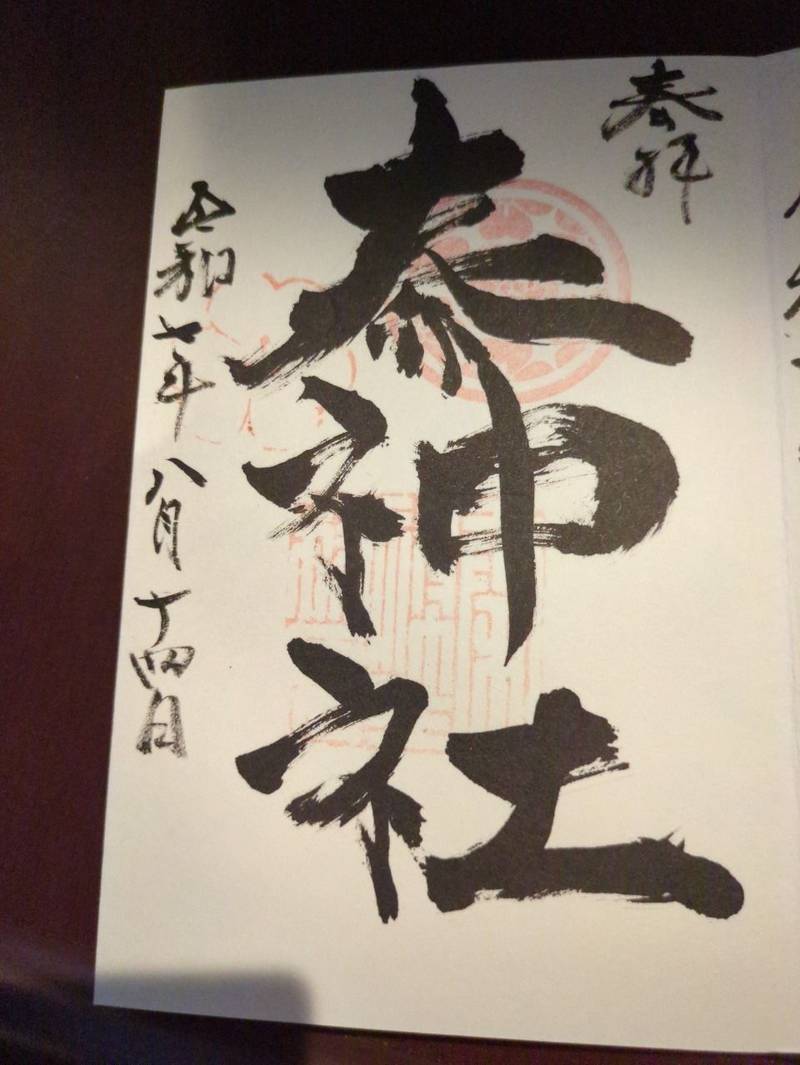 奉拝
秦神社
令和七年八月十四日